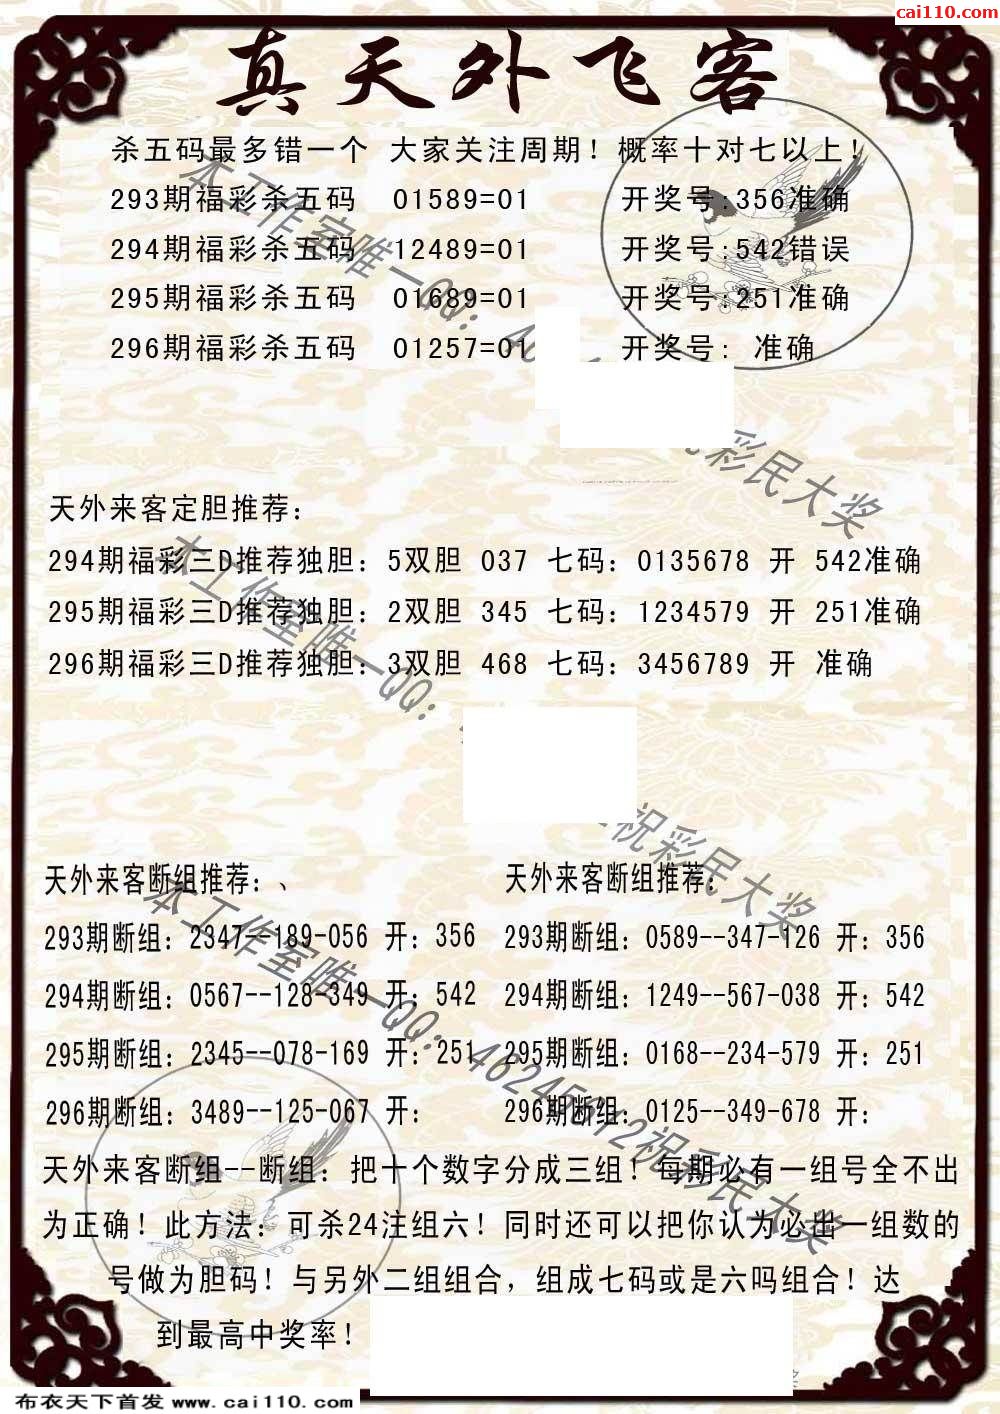 cai110.com
真天外飞客
杀五码最多错一个 大家关注周期！概率十对七以上！
293期福彩杀五码 01589=01 开奖号:356准确
294期福彩杀五码 12489=01 开奖号:542错误
295期福彩杀五码 01689=01 开奖号:251准确
296期福彩杀五码 01257=01 开奖号: 准确
天外来客定胆推荐：
294期福彩三D推荐独胆：5双胆 037 七码：0135678 开 542准确
295期福彩三D推荐独胆：2双胆 345 七码：1234579 开 251准确
296期福彩三D推荐独胆：3双胆 468 七码：3456789 开 准确
天外来客断组推荐：、 天外来客断组推荐：
293期断组：2347--189-056 开：356 293期断组：0589--347-126 开：356
294期断组：0567--128-349 开：542 294期断组：1249--567-038 开：542
295期断组：2345--078-169 开：251 295期断组：0168--234-579 开：251
296期断组：3489--125-067 开： 296期断组：0125--349-678 开：
天外来客断组--断组：把十个数字分成三组！每期必有一组号全不出
为正确！此方法：可杀24注组六！同时还可以把你认为必出一组数的
号做为胆码！与另外二组组合，组成七码或是六吗组合！达
到最高中奖率！
本工作室唯一QQ：
彩民大奖
本工作室唯一QQ：
祝彩民大奖
本工作室唯一QQ：
祝彩民大奖
布衣天下首发 www.cai110.com